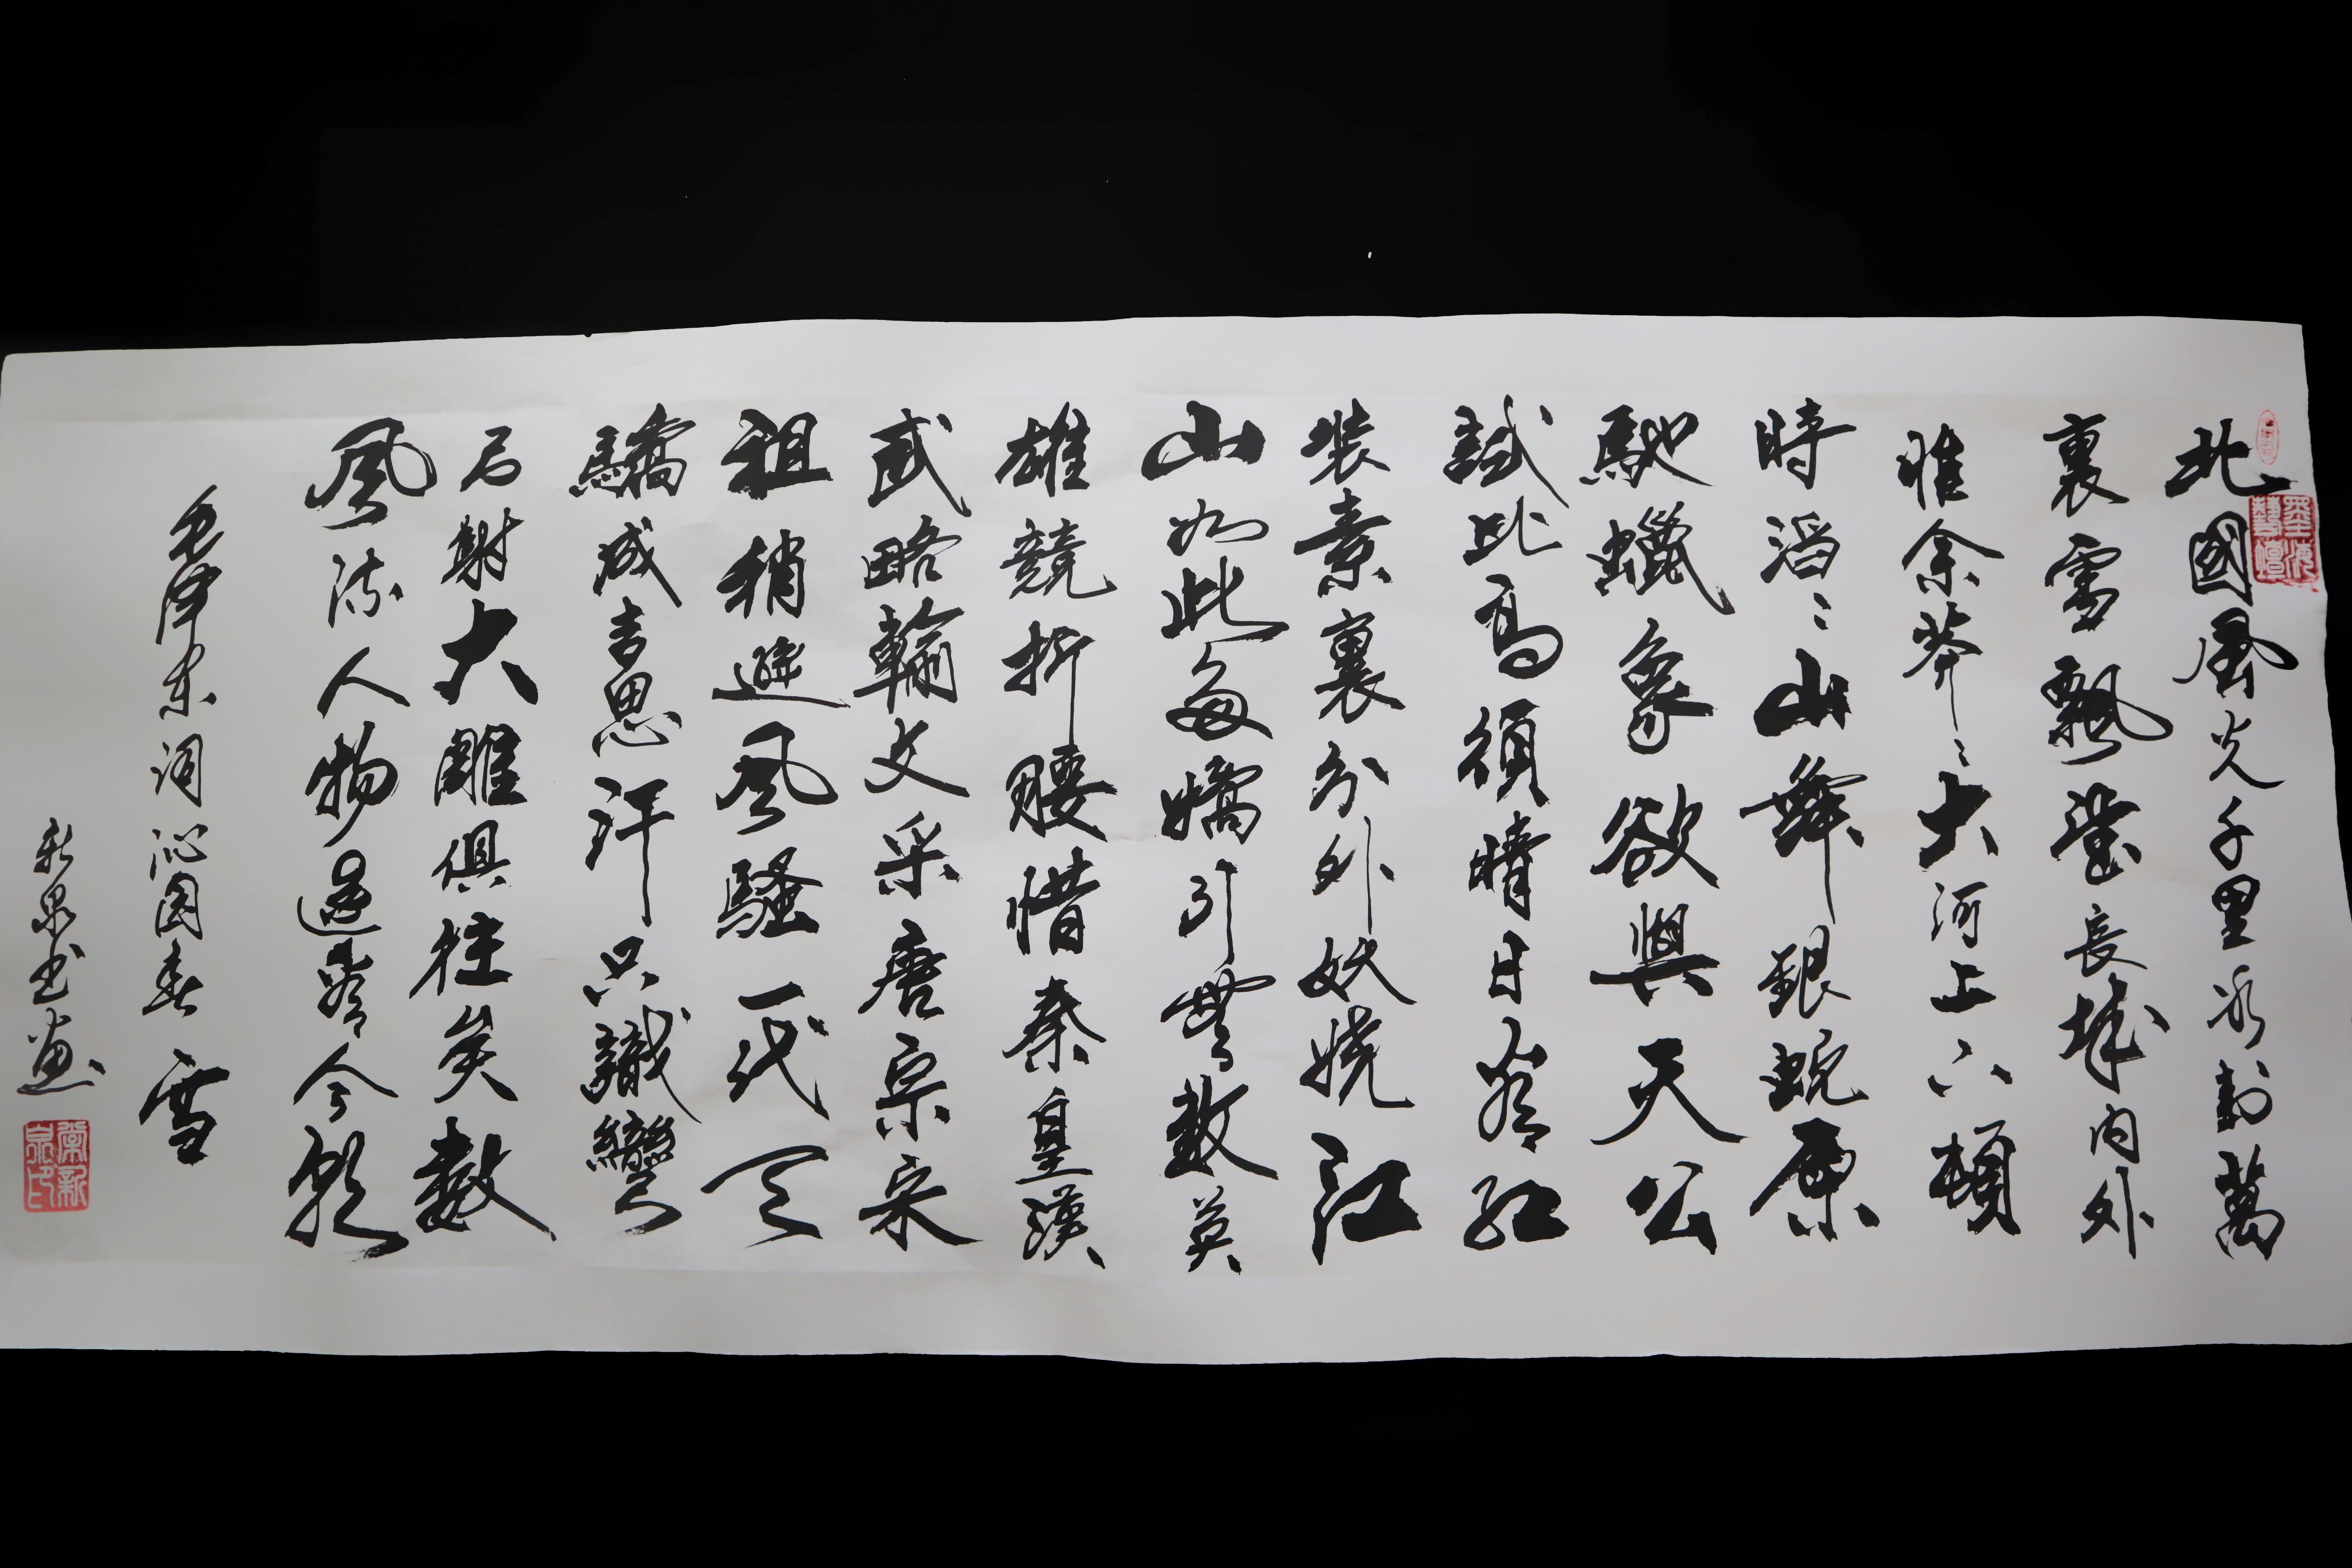 北國風光千里冰封萬
裏雪飄望長城內外
惟余莽〻大河上下頓
時滔〻山舞銀蛇原
馳蠟象欲與天公
試比高須晴日看紅
裝素裹分外妖嬈江
山如此多嬌引無數英
雄競折腰惜秦皇漢
武略輸文采唐宗宋
祖稍遜風騷一代天
驕成吉思汗只識彎
弓射大雕俱往矣數
風流人物還看今朝
毛泽东词沁园春 雪
新泉书画
常新泉印
墨海藝壇